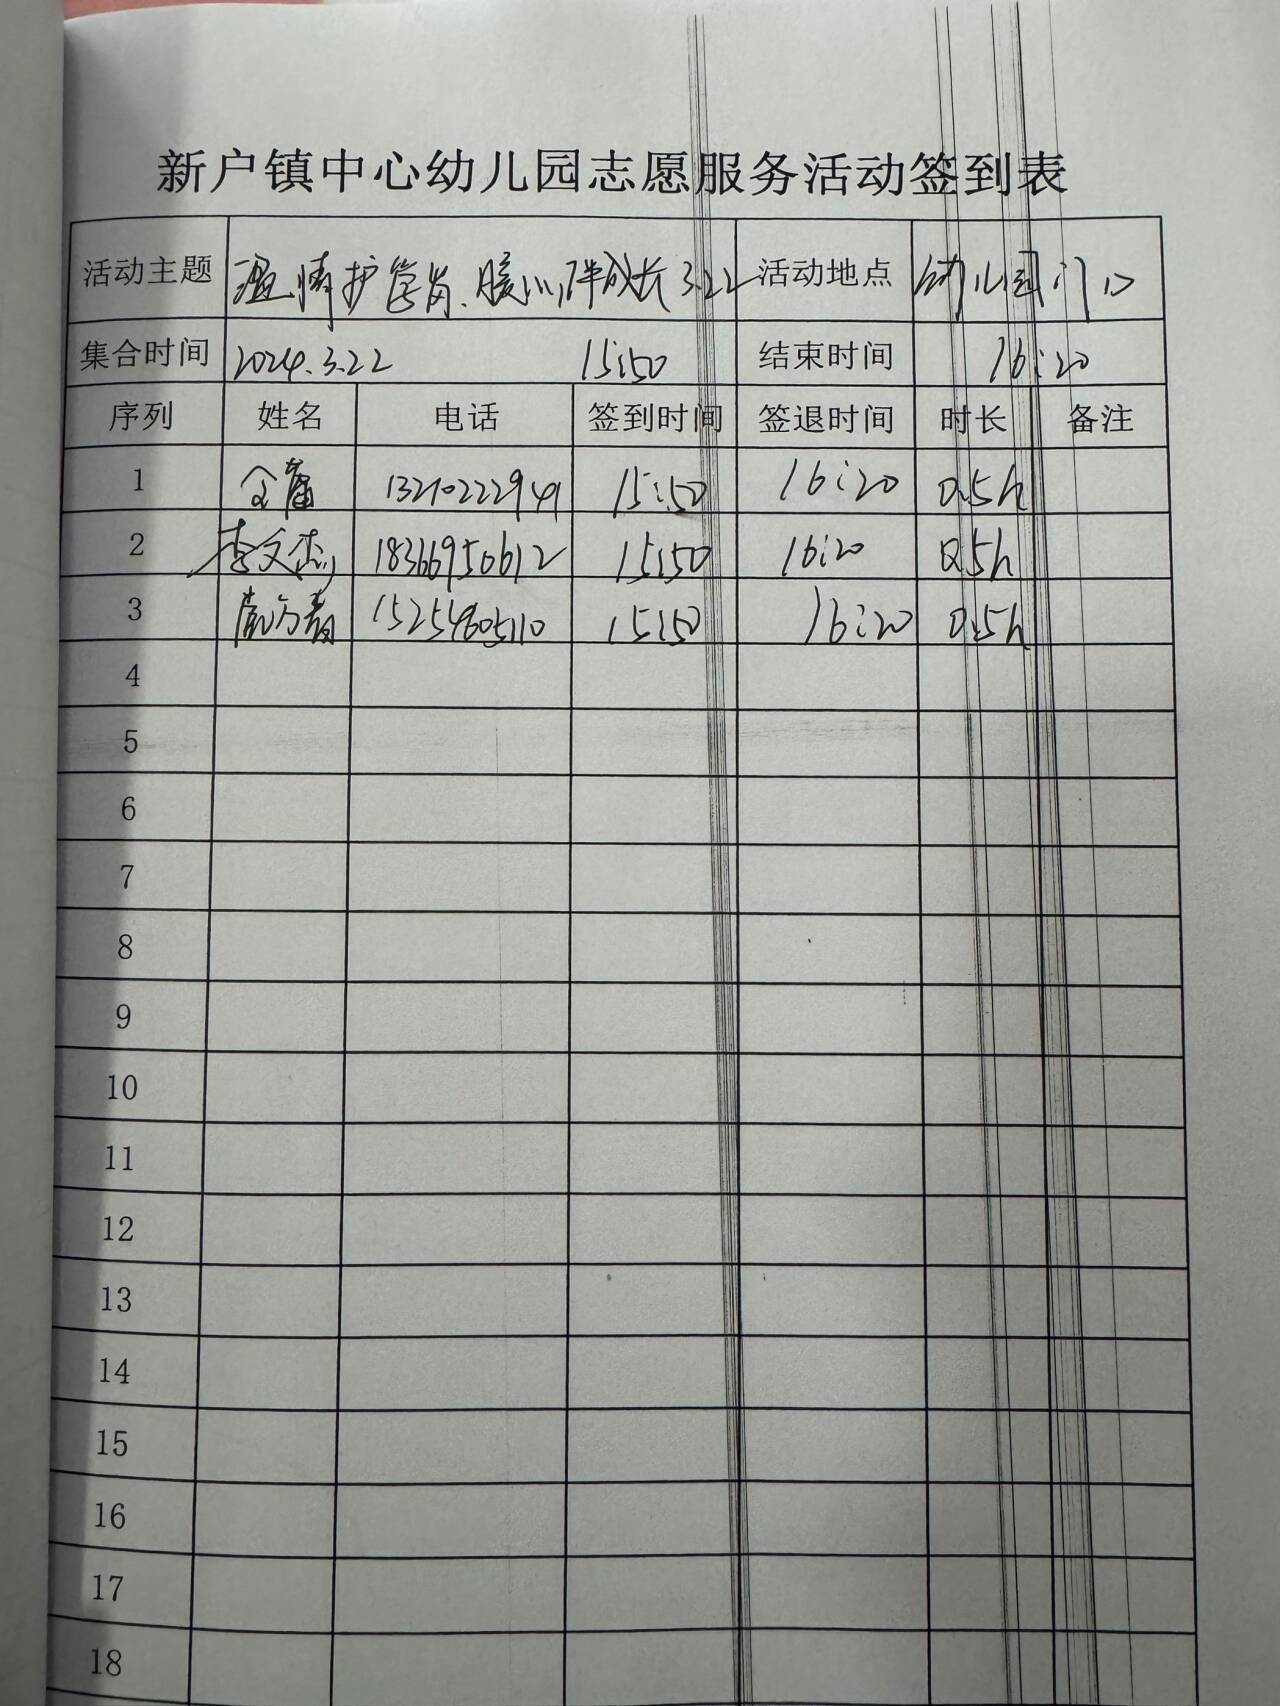 新户镇中心幼儿园志愿服务活动签到表
活动主题 温情护学岗、暖心伴成长 3.22 活动地点 幼儿园门口
集合时间 2024.3.22 15:50 结束时间 16:20
序列 姓名 电话 签到时间 签退时间 时长 备注
1 13210222941 15:50 16:20 0.5h
2 李文杰 18366950612 15:50 16:20 0.5h
3 15254605110 15:50 16:20 0.5h
4
5
6
7
8
9
10
11
12
13
14
15
16
17
18